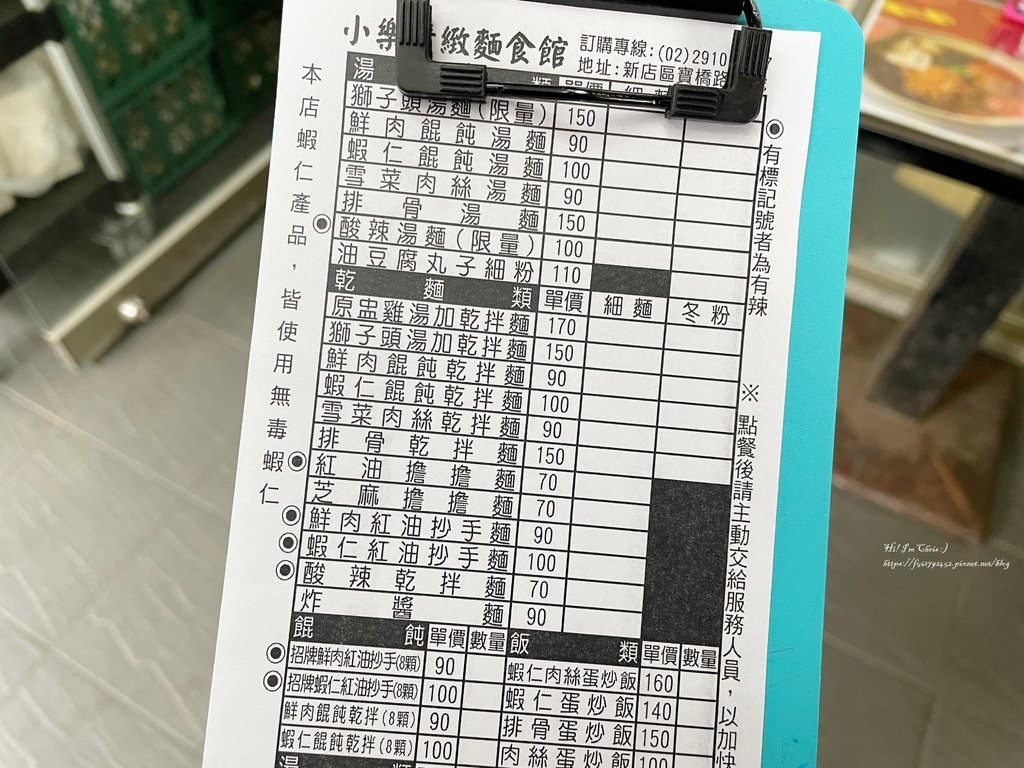 小樂 緻麵食館
訂購專線:(02)2910
地址:新店區寶橋路
湯 類 單價 細
獅子頭湯麵(限量) 150
鮮肉餛飩湯麵 90
蝦仁餛飩湯麵 100
雪菜肉絲湯麵 90
排骨湯麵 150
◉酸辣湯麵(限量) 100
油豆腐丸子細粉 110
乾麵類 單價 細麵 冬粉
原盅雞湯加乾拌麵 170
獅子頭湯加乾拌麵 150
鮮肉餛飩乾拌麵 90
蝦仁餛飩乾拌麵 100
雪菜肉絲乾拌麵 90
排骨乾拌麵 150
◉紅油擔擔麵 70
芝麻擔擔麵 70
◉鮮肉紅油抄手麵 90
◉蝦仁紅油抄手麵 100
◉酸辣乾拌麵 70
炸醬麵 90
餛飩 單價 數量 飯類 單價 數量
◉招牌鮮肉紅油抄手(8顆) 90 蝦仁肉絲蛋炒飯 160
◉招牌蝦仁紅油抄手(8顆) 100 蝦仁蛋炒飯 140
鮮肉餛飩乾拌(8顆) 90 排骨蛋炒飯 150
蝦仁餛飩乾拌(8顆) 100 肉絲蛋炒飯 100
本店蝦仁產品，皆使用無毒蝦仁
◉有標記號者為有辣
※點餐後請主動交給服務人員，以加快
Hi! I'm Chris :)
https://f501792452.pixnet.net/blog